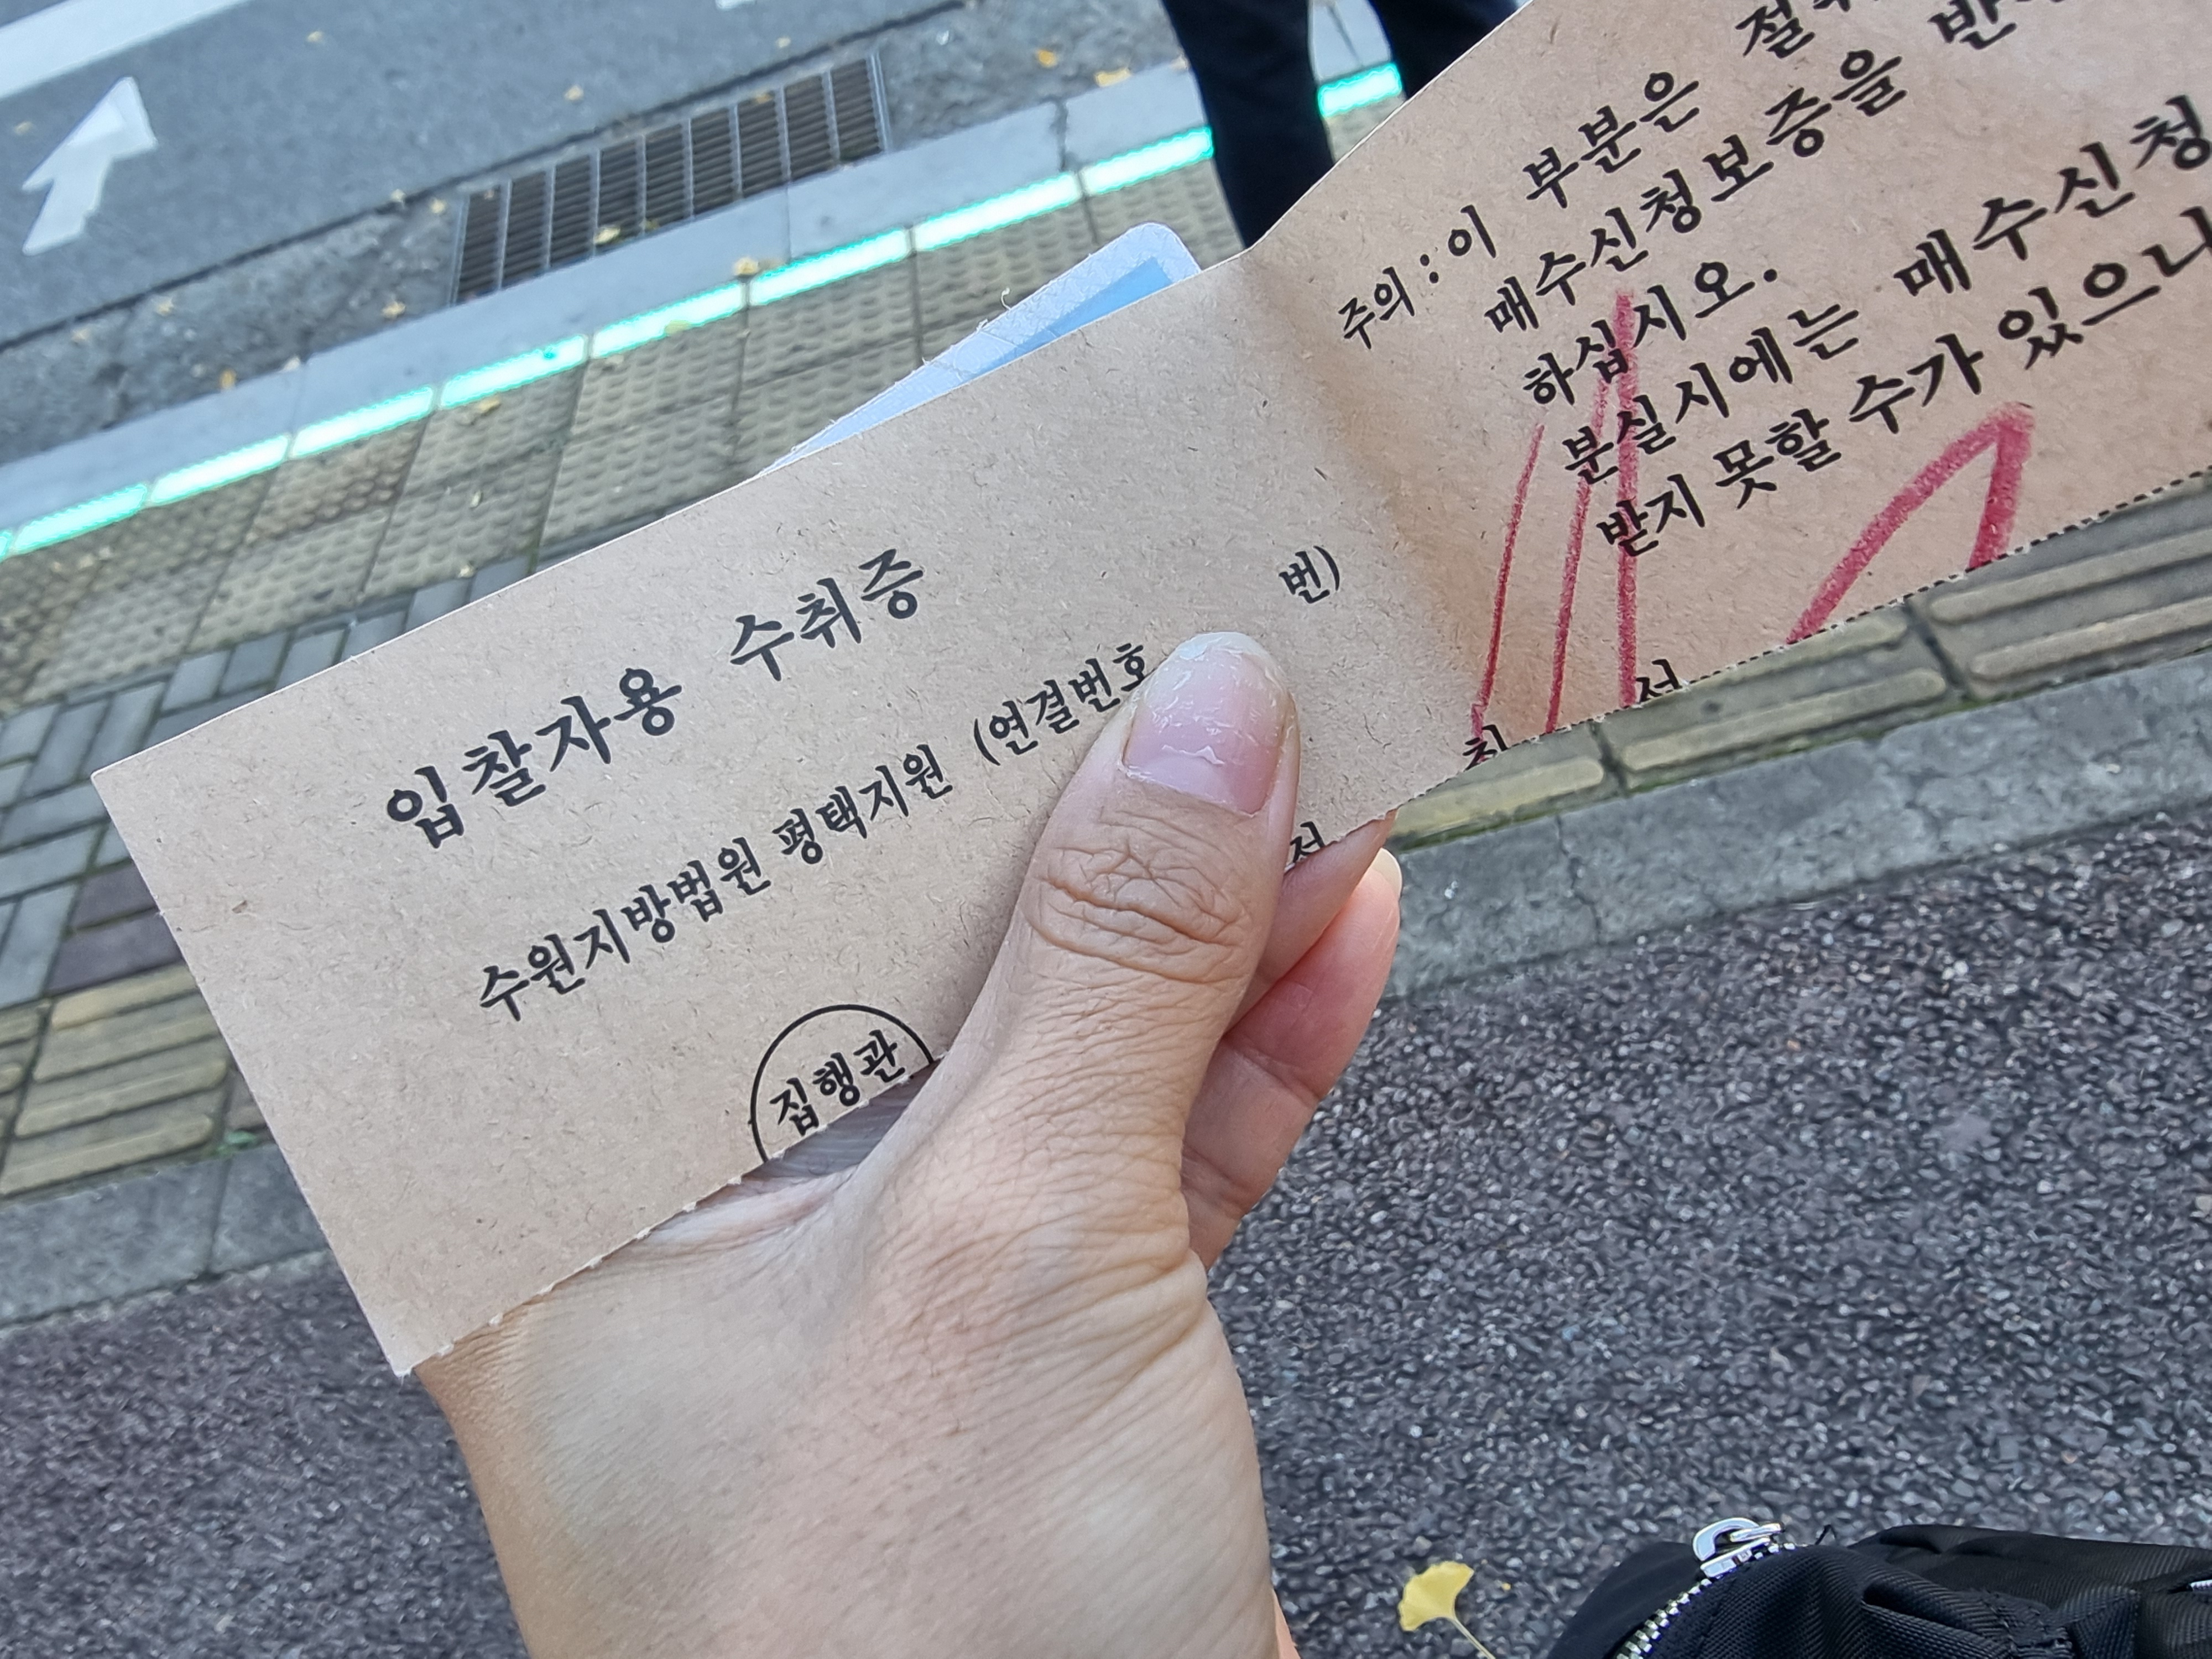 입찰자용 수취증
수원지방법원 평택지원 (연결번호 번)
집행관
주의 : 이 부분은
매수신청보증을
하십시오.
분실시에는 매수신청
받지 못할 수가 있으니